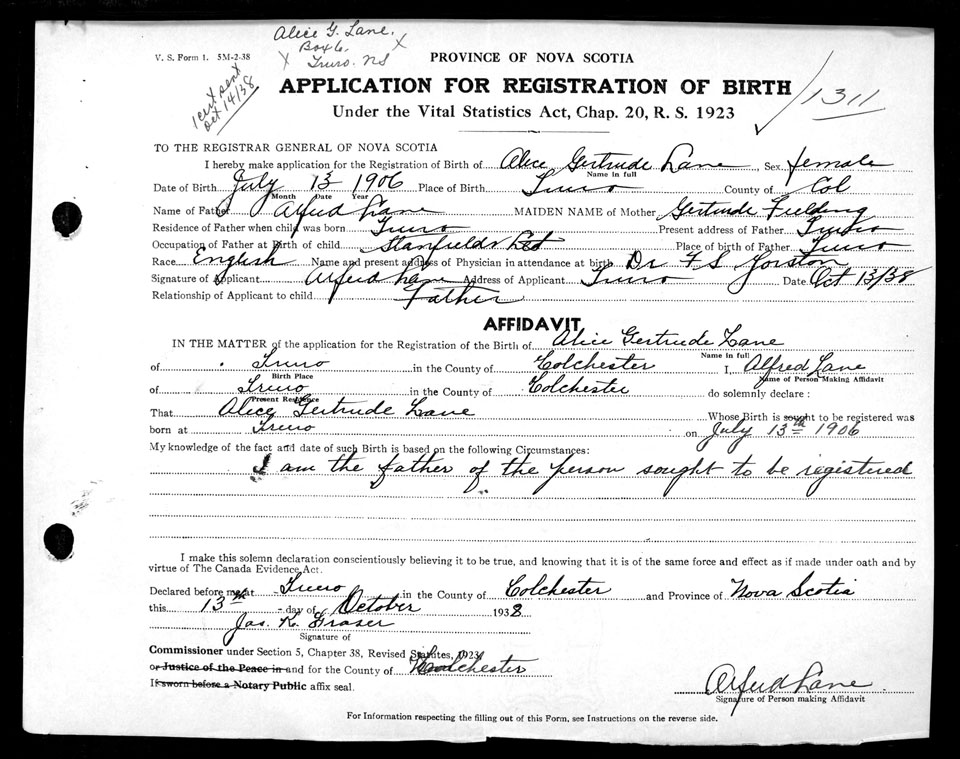 Alice G. Lane.
Box 6.
Truro. NS
V. S. Form 1. 5M-2-38
1 cert sent
Oct 14/38
PROVINCE OF NOVA SCOTIA
APPLICATION FOR REGISTRATION OF BIRTH
1311
Under the Vital Statistics Act, Chap. 20, R. S. 1923
TO THE REGISTRAR GENERAL OF NOVA SCOTIA
I hereby make application for the Registration of Birth of Alice Gertrude Lane Sex female
Name in full
Date of Birth July 13 1906 Place of Birth Truro County of Col
Month Date Year
Name of Father Alfred Lane MAIDEN NAME of Mother Gertrude Fielding
Residence of Father when child was born Truro Present address of Father Truro
Occupation of Father at Birth of child Stanfields Ltd Place of birth of Father Truro
Race English Name and present address of Physician in attendance at birth Dr F S Yorston
Signature of Applicant Alfred Lane Address of Applicant Truro Date Oct 13/38
Relationship of Applicant to child Father
AFFIDAVIT
IN THE MATTER of the application for the Registration of the Birth of Alice Gertrude Lane
Name in full
of Truro in the County of Colchester I, Alfred Lane
Birth Place Name of Person Making Affidavit
of Truro in the County of Colchester do solemnly declare :
Present Residence
That Alice Gertrude Lane Whose Birth is sought to be registered was
born at Truro on July 13th 1906
My knowledge of the fact and date of such Birth is based on the following Circumstances:
I am the father of the person sought to be registered
I make this solemn declaration conscientiously believing it to be true, and knowing that it is of the same force and effect as if made under oath and by
virtue of The Canada Evidence Act.
Declared before me at Truro in the County of Colchester and Province of Nova Scotia
this 13th day of October 1938
Jas. K. Fraser
Signature of
Commissioner under Section 5, Chapter 38, Revised Statutes, 1923
or Justice of the Peace in and for the County of Colchester
If sworn before a Notary Public affix seal.
Alfred Lane
Signature of Person making Affidavit
For Information respecting the filling out of this Form, see Instructions on the reverse side.